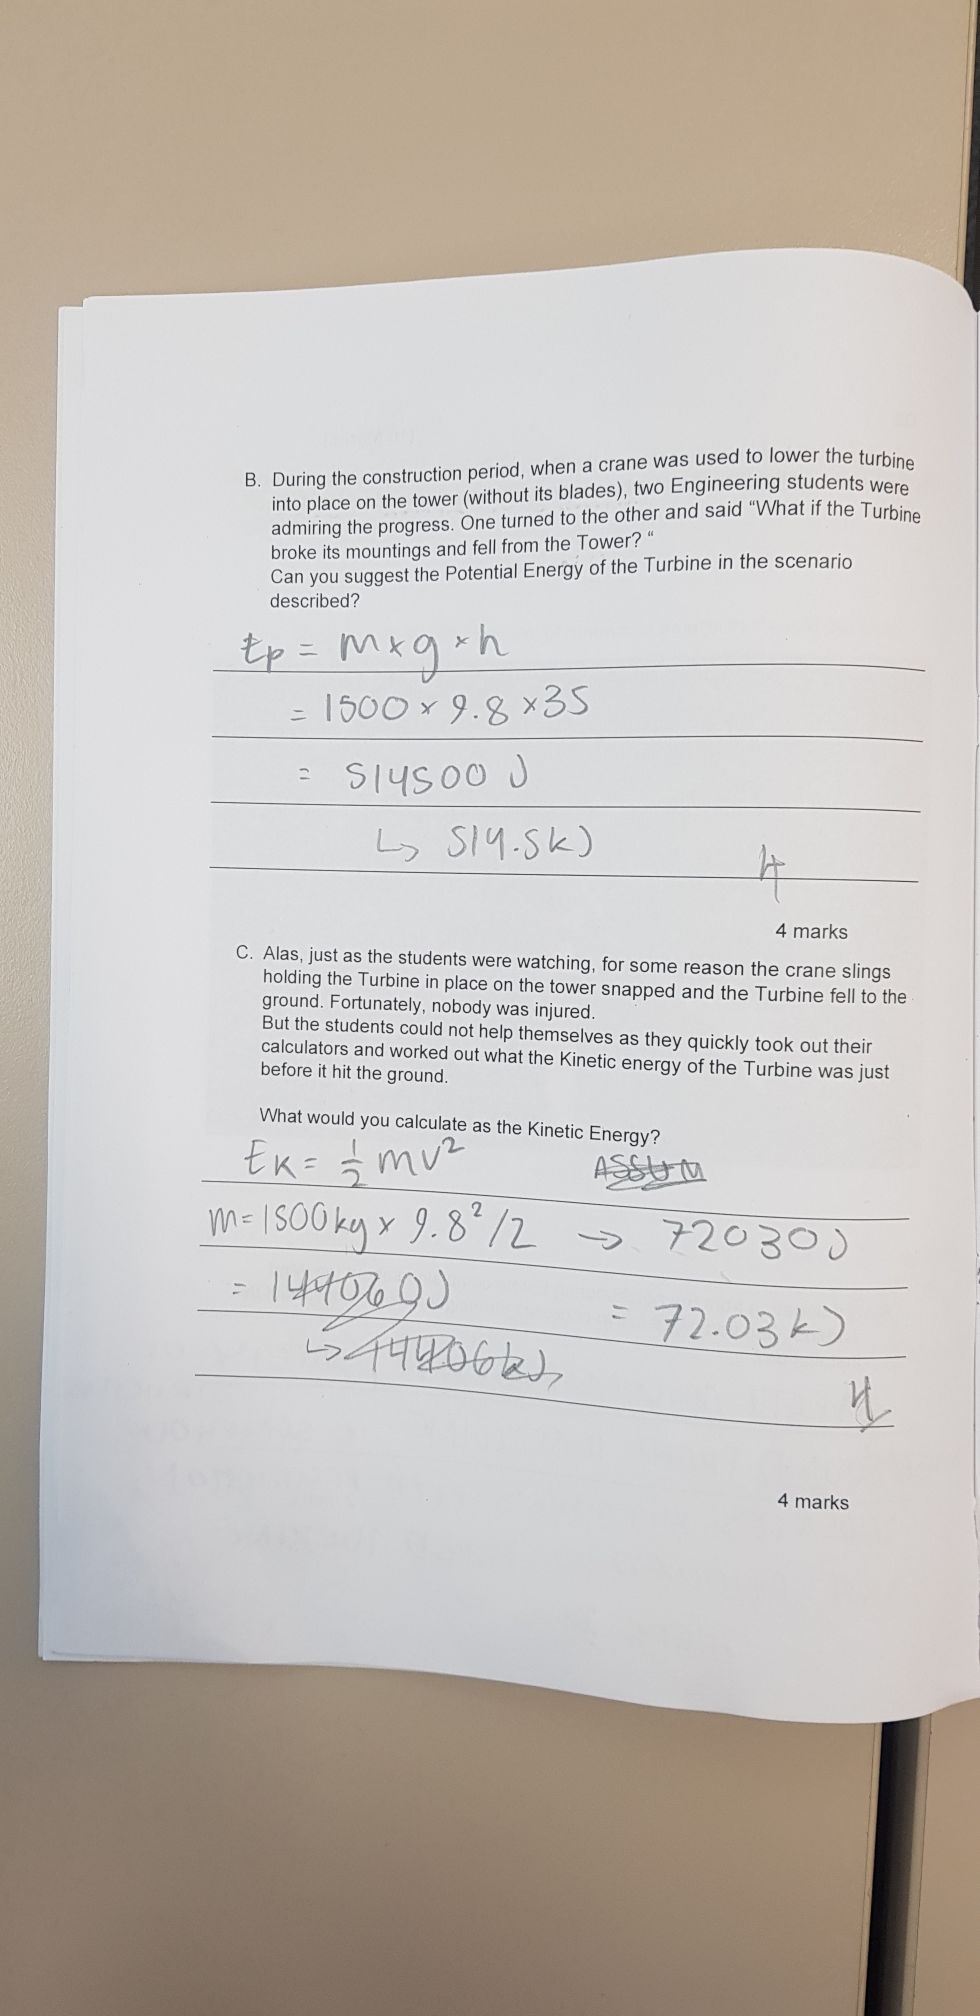 B. During the construction period, when a crane was used to lower the turbine
into place on the tower (without its blades), two Engineering students were
admiring the progress. One turned to the other and said “What if the Turbine
broke its mountings and fell from the Tower? “
Can you suggest the Potential Energy of the Turbine in the scenario
described?
Ep = m x g x h
= 1500 x 9.8 x 35
= 514500 J
↳ 514.5kJ
4
4 marks
C. Alas, just as the students were watching, for some reason the crane slings
holding the Turbine in place on the tower snapped and the Turbine fell to the
ground. Fortunately, nobody was injured.
But the students could not help themselves as they quickly took out their
calculators and worked out what the Kinetic energy of the Turbine was just
before it hit the ground.
What would you calculate as the Kinetic Energy?
EK = ½ mv² ASSUM
m=1500kg x 9.8²/2 → 72030J
= 144060J
= 72.03kJ
4
4 marks